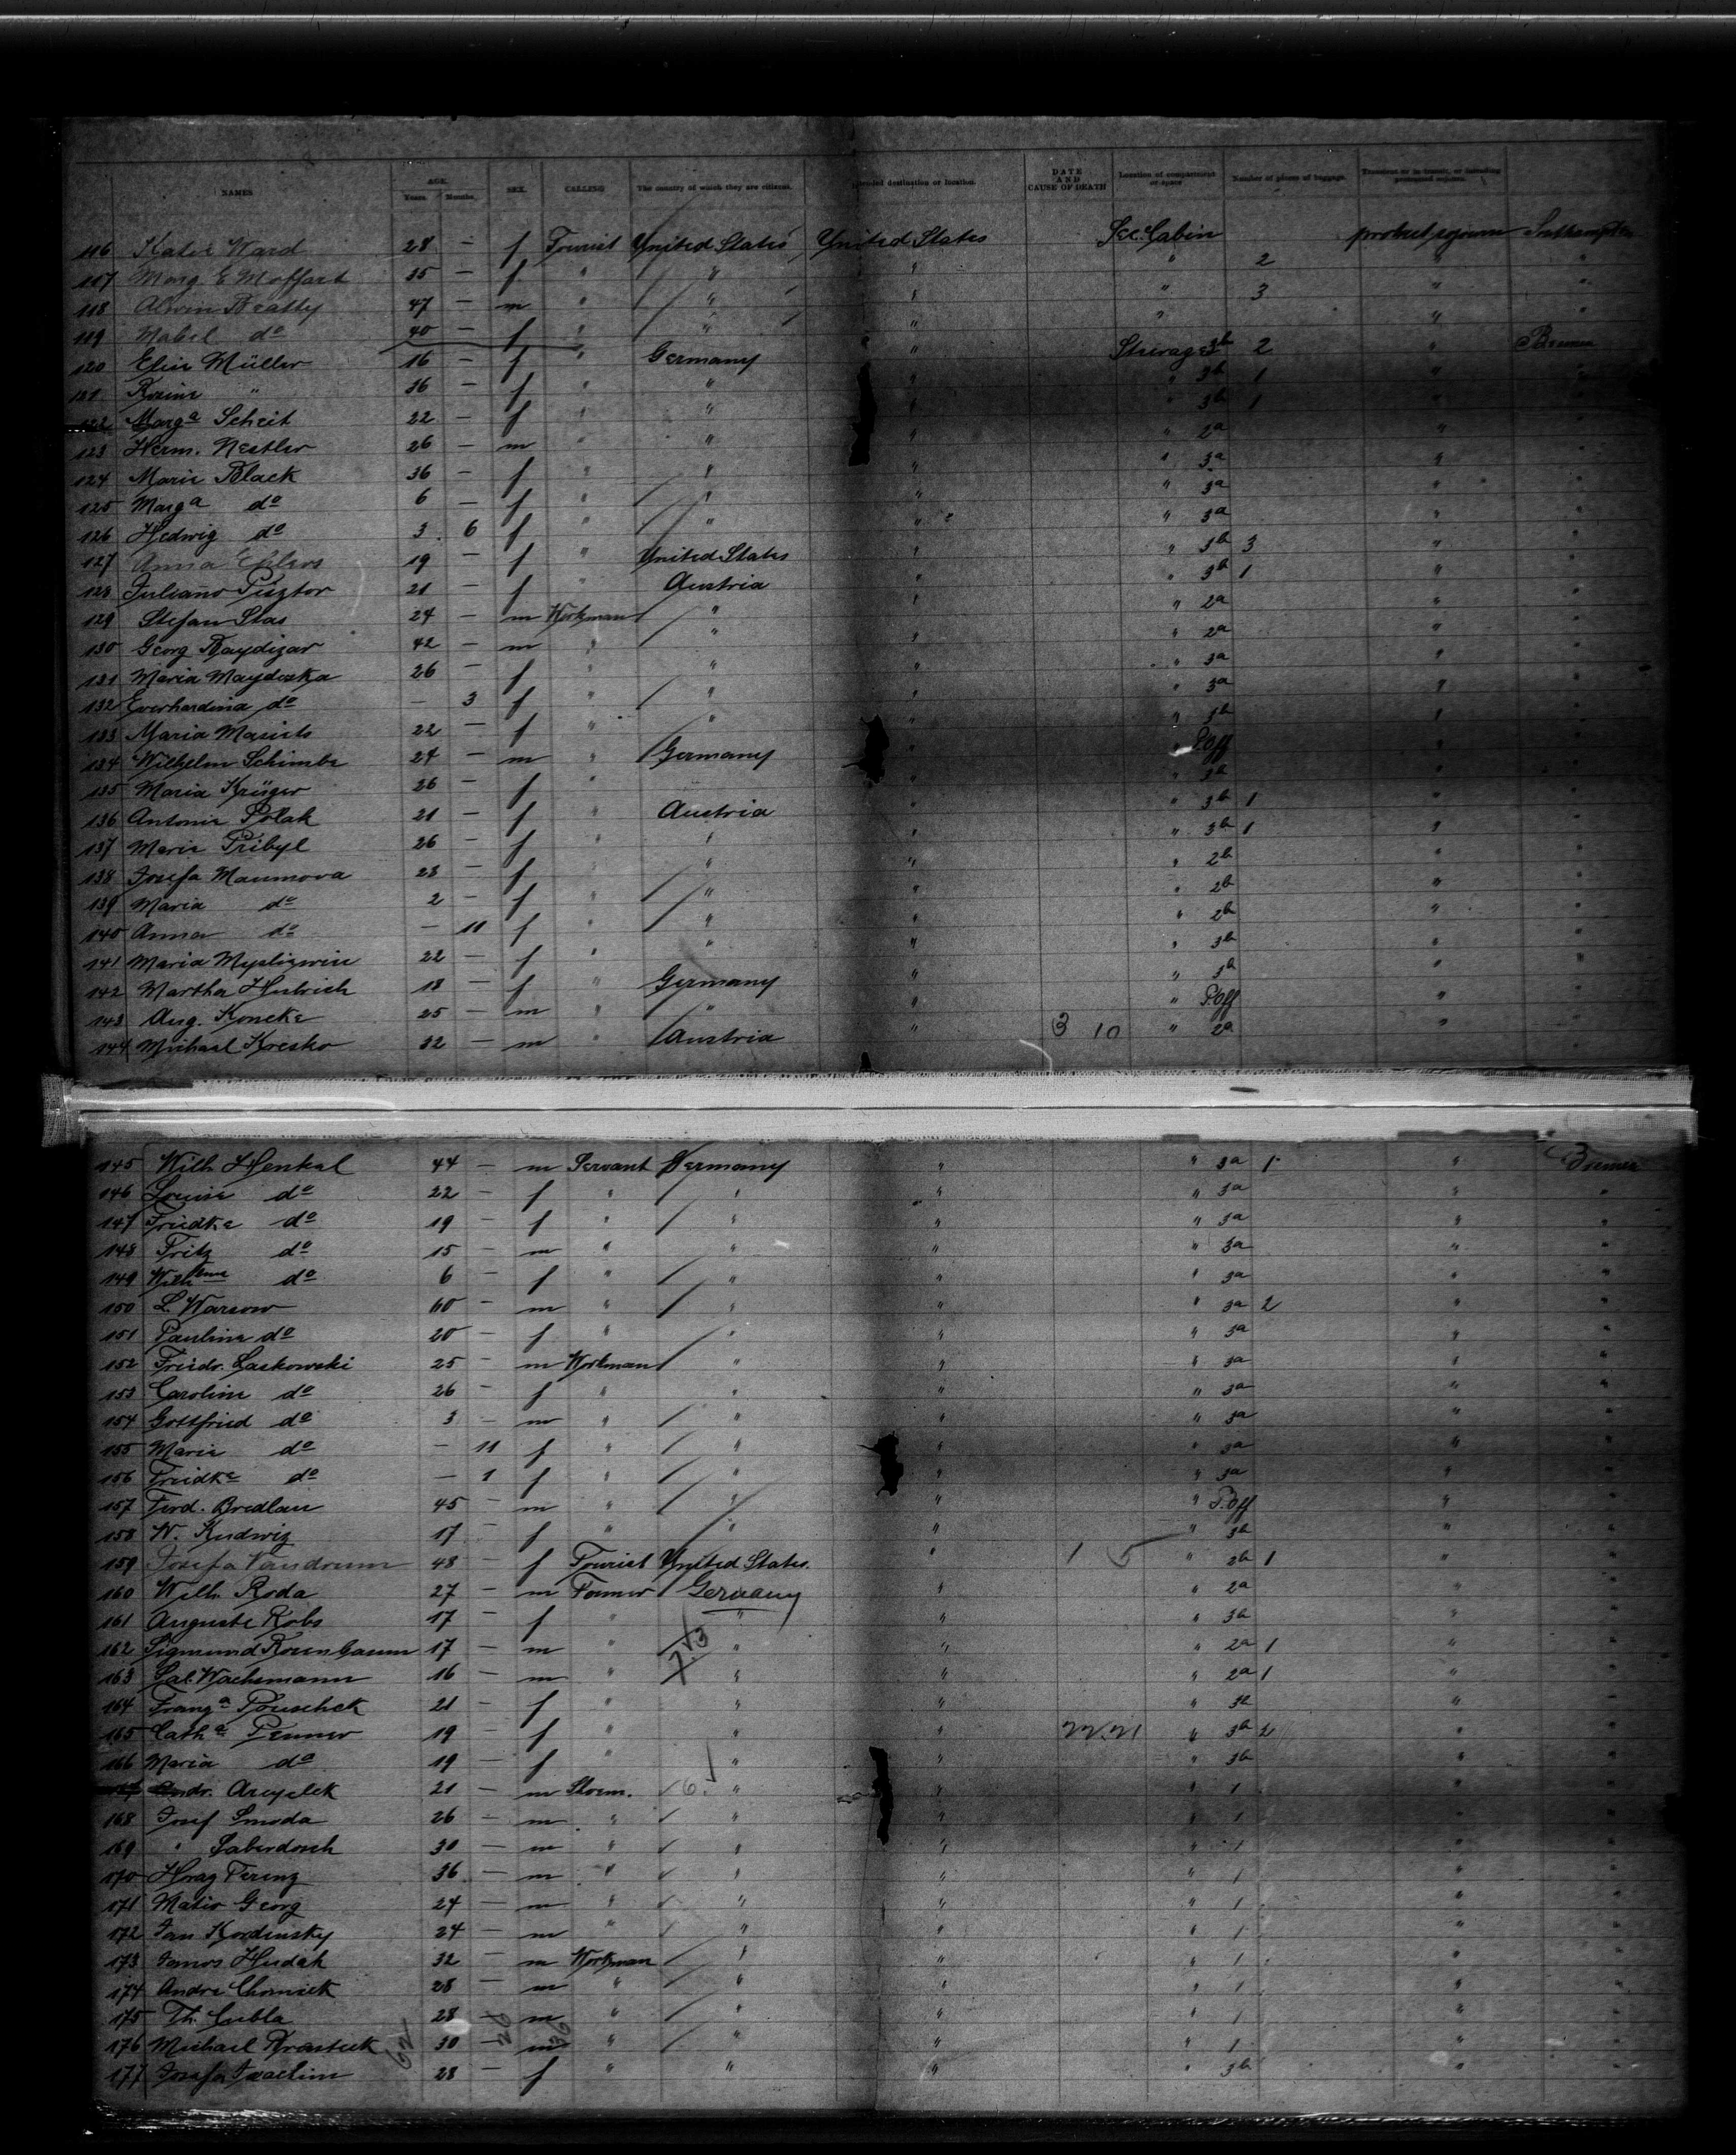 NAMES AGE. Years. Months. SEX. CALLING The country of which they are citizens. Intended destination or location. DATE AND CAUSE OF DEATH Location of compartment or space Number of pieces of baggage. Transient or in transit, or intending protracted sojourn.
116 Katie Ward 28 — f Tourist United States United States Sec. Cabin protract sojourn Southampton
117 Marg E Moffart 35 — f " " " " 2 " "
118 Alwin Beatty 47 — m " " " " 3 " "
119 Mabel do 40 — f " " " " " "
120 Elise Müller 16 — f " Germany " Steerage 3b 2 " Bremen
121 Rosine " 36 — f " " " " 3b 1 " "
122 Marga Scheit 22 — f " " " " 3b 1 " "
123 Herm. Nestler 26 — m " " " " 2a " "
124 Marie Black 36 — f " " " " 3a " "
125 Marga do 6 — f " " " " 3a " "
126 Hedwig do 3 6 f " " " " 3a " "
127 Anna Ehlers 19 — f " United States " " 3b 3 " "
128 Juliano Pisztor 21 — f " Austria " " 3b 1 " "
129 Stefan Stas 24 — m Workman " " " 2a " "
130 Georg Raydizar 42 — m " " " " 2a " "
131 Maria Maydoska 26 — f " " " " 3a " "
132 Everhardina do — 3 f " " " " 3a " "
133 Maria Masirts 22 — f " " " " 3b " "
134 Wilhelm Schimbe 24 — m " Germany " " P.Off " "
135 Maria Krüger 26 — f " " " 3a " "
136 Antonie Polak 21 — f " Austria " " 3b 1 " "
137 Marie Pribyl 26 — f " " " " 3b 1 " "
138 Josefa Maumova 28 — f " " " " 2b " "
139 Maria do 2 — f " " " " 2b " "
140 Anna do — 11 f " " " " 2b " "
141 Maria Myslizwiec 22 — f " " " " 3b " "
142 Martha Hulrich 18 — f " Germany " " 3b " "
143 Aug. Koncke 25 — m " " " " P.Off " "
144 Michael Kresko 32 — m " Austria " 3 10 " 2a " "
145 Wilh. Henkel 44 — m Servant Germany " " 3a 1 " Bremen
146 Louise do 22 — f " " " " 3a " "
147 Friedke do 19 — f " " " " 3a " "
148 Fritz do 15 — m " " " " 3a " "
149 Wilhlme do 6 — f " " " " 3a " "
150 L. Warsow 60 — m " " " " 3a 2 " "
151 Pauline do 20 — f " " " " 3a " "
152 Friedr. Laskowski 25 — m Workman " " " 3a " "
153 Caroline do 26 — f " " " " 3a " "
154 Gottfried do 3 — m " " " " 3a " "
155 Marie do — 11 f " " " " 3a " "
156 Friedke do — 1 f " " " " 3a " "
157 Ferd. Bredlau 45 — m " " " " P.Off " "
158 W. Kudwig 17 — f " " " " 3b " "
159 Josefa Vandrum 48 — f Tourist United States. " 1 5 " 2b 1 " "
160 Wilh. Roda 27 — m Farmer Germany " " 2a " "
161 Auguste Robs 17 — f " " " " 3b " "
162 Sigmund Rosenbaum 17 — m " " " " 2a 1 " "
163 Sal. Wachsmann 16 — m " " " " 2a 1 " "
164 Franza Pouschek 21 — f " " " " 3b " "
165 Catha Penner 19 — f " " " 22.21 " 3b 2 " "
166 Maria do 19 — f " " " " 3b " "
Andr. Arcyelek 21 — m 6. " " " 1 " "
168 Josef Smoda 26 — m " " " " 1 " "
169 " Laberdosch 30 — m " " " " 1 " "
170 Hrag Ferenz 36 — m " " " " 1 " "
171 Matio Georg 24 — m " " " " 1 " "
172 Jan Kordinsky 24 — m " " " " 1 " "
173 Janos Hudak 32 — m Workman " " " 1 " "
174 Andre Chomick 28 — m " " " " 1 " "
175 Th. Cubla 28 — m " " " " 1 " "
176 Michael Krasteck 30 — m " " " " 1 " "
177 Josefa Joachim 28 — f " " " " 3b " "